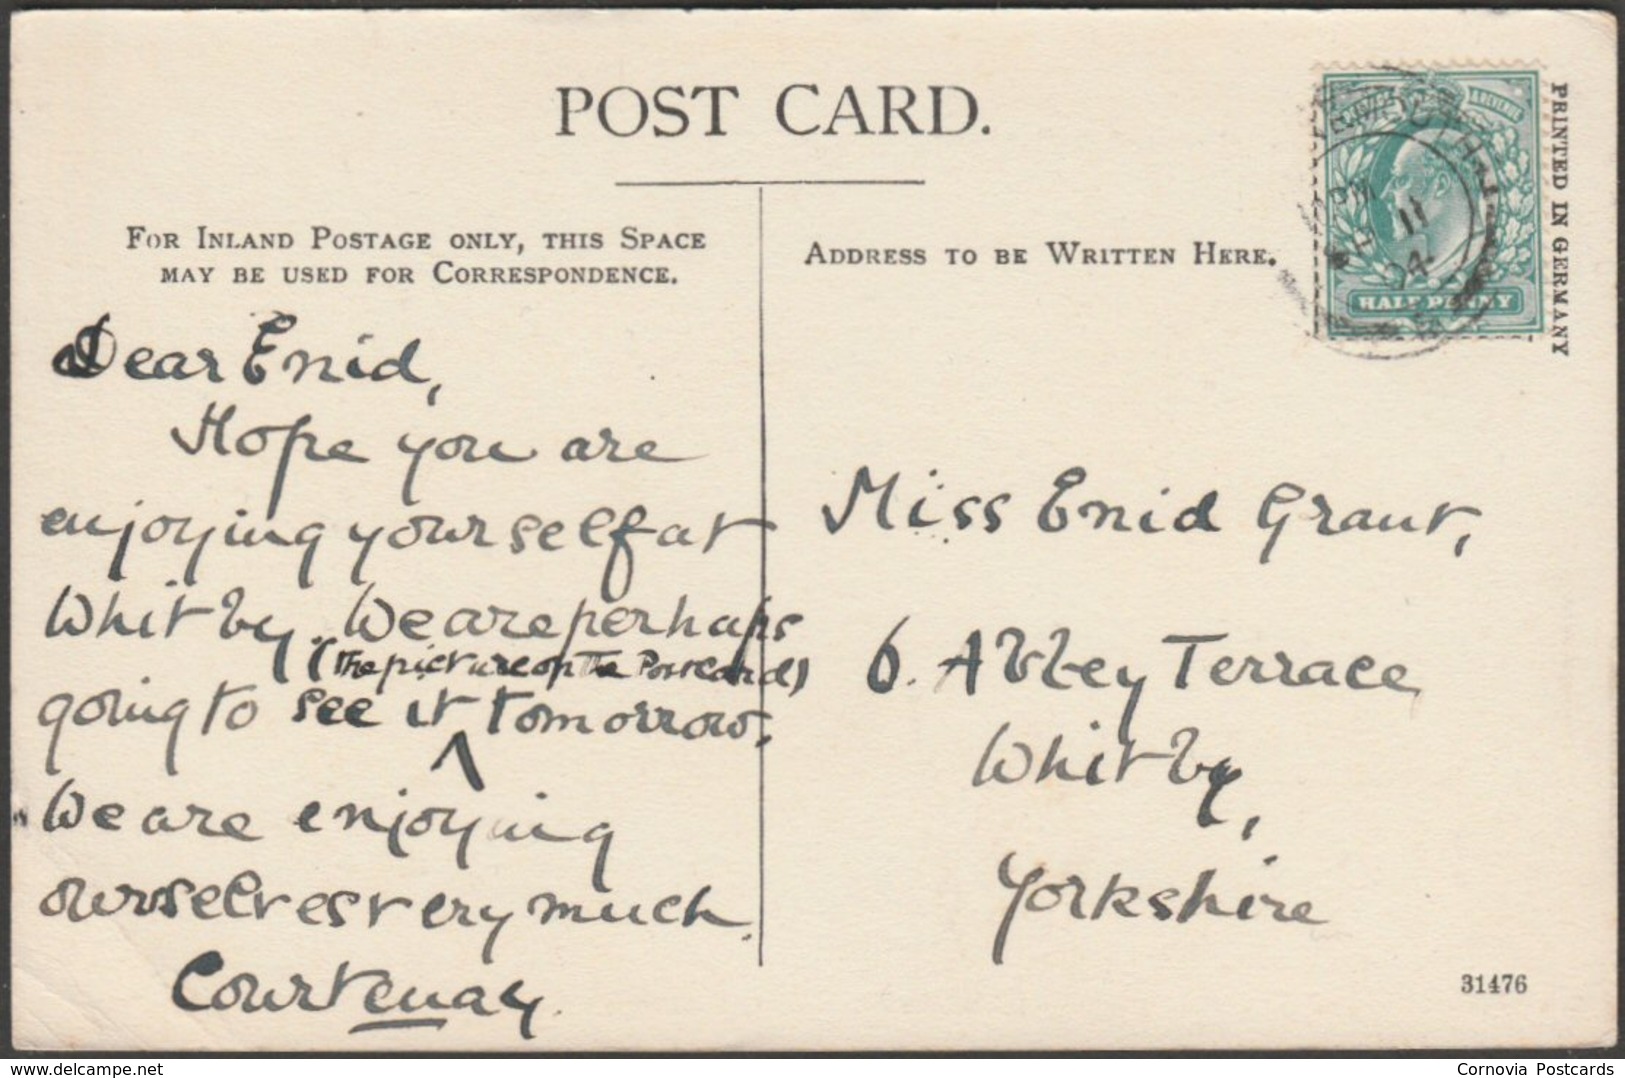 POST CARD.
FOR INLAND POSTAGE ONLY, THIS SPACE
MAY BE USED FOR CORRESPONDENCE.
Dear Enid,
Hope you are
enjoying yourself at
Whitby. We are perhaps
(The picture on the Postcard)
going to see it ^ tomorrow.
We are enjoying
ourselves very much.
Courtenay.
ADDRESS TO BE WRITTEN HERE.
Miss Enid Grant,
6. Abbey Terrace
Whitby,
Yorkshire
31476
HALF PENNY
PM
11
04
PRINTED IN GERMANY
delcampe.net
Cornovia Postcards